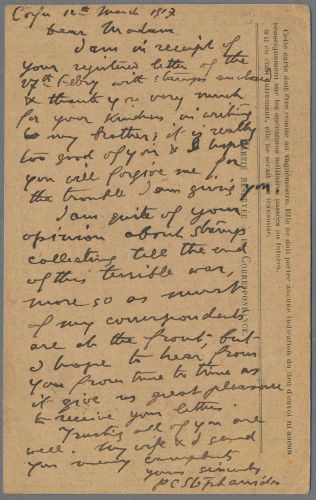 Corfu 12th March 1917
Dear Madam.
I am in receipt of
your registered letter of the
27th Febry with stamps enclosed
& thank you very much
for your kindness in writing
to my brother; it is really
too good of you & I hope
you will forgive me for
the trouble I am giving you
I am quite of your
opinion about stamps
collecting till the end
of this terrible war,
more so as most
of my correspondents
are at the front, but
I hope to hear from
you from time to time as
it give us great pleasure
to receive your letters.
Trusting all of you are
well. My wife & I send
you many compliments
yours sincerely
PARTIE RÉSERVÉE À LA CORRESPONDANCE.
Cette carte doit être remise au vaguemestre. Elle ne doit porter aucune indication du lieu d'envoi ni aucun
renseignement sur les opérations militaires passées ou futures.
S'il en était autrement, elle ne serait pas transmise.